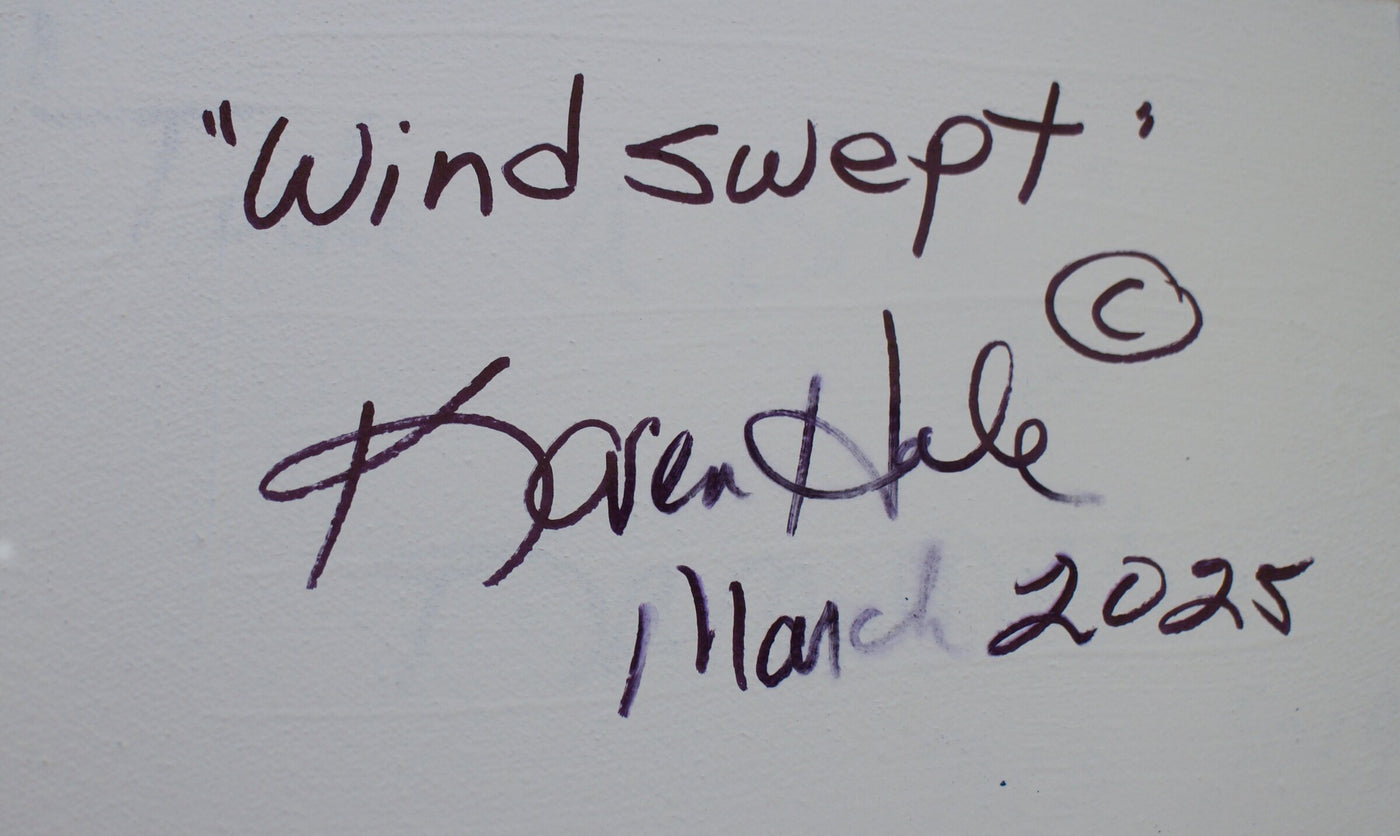 "Wind swept"
©
Karen Hale
March 2025